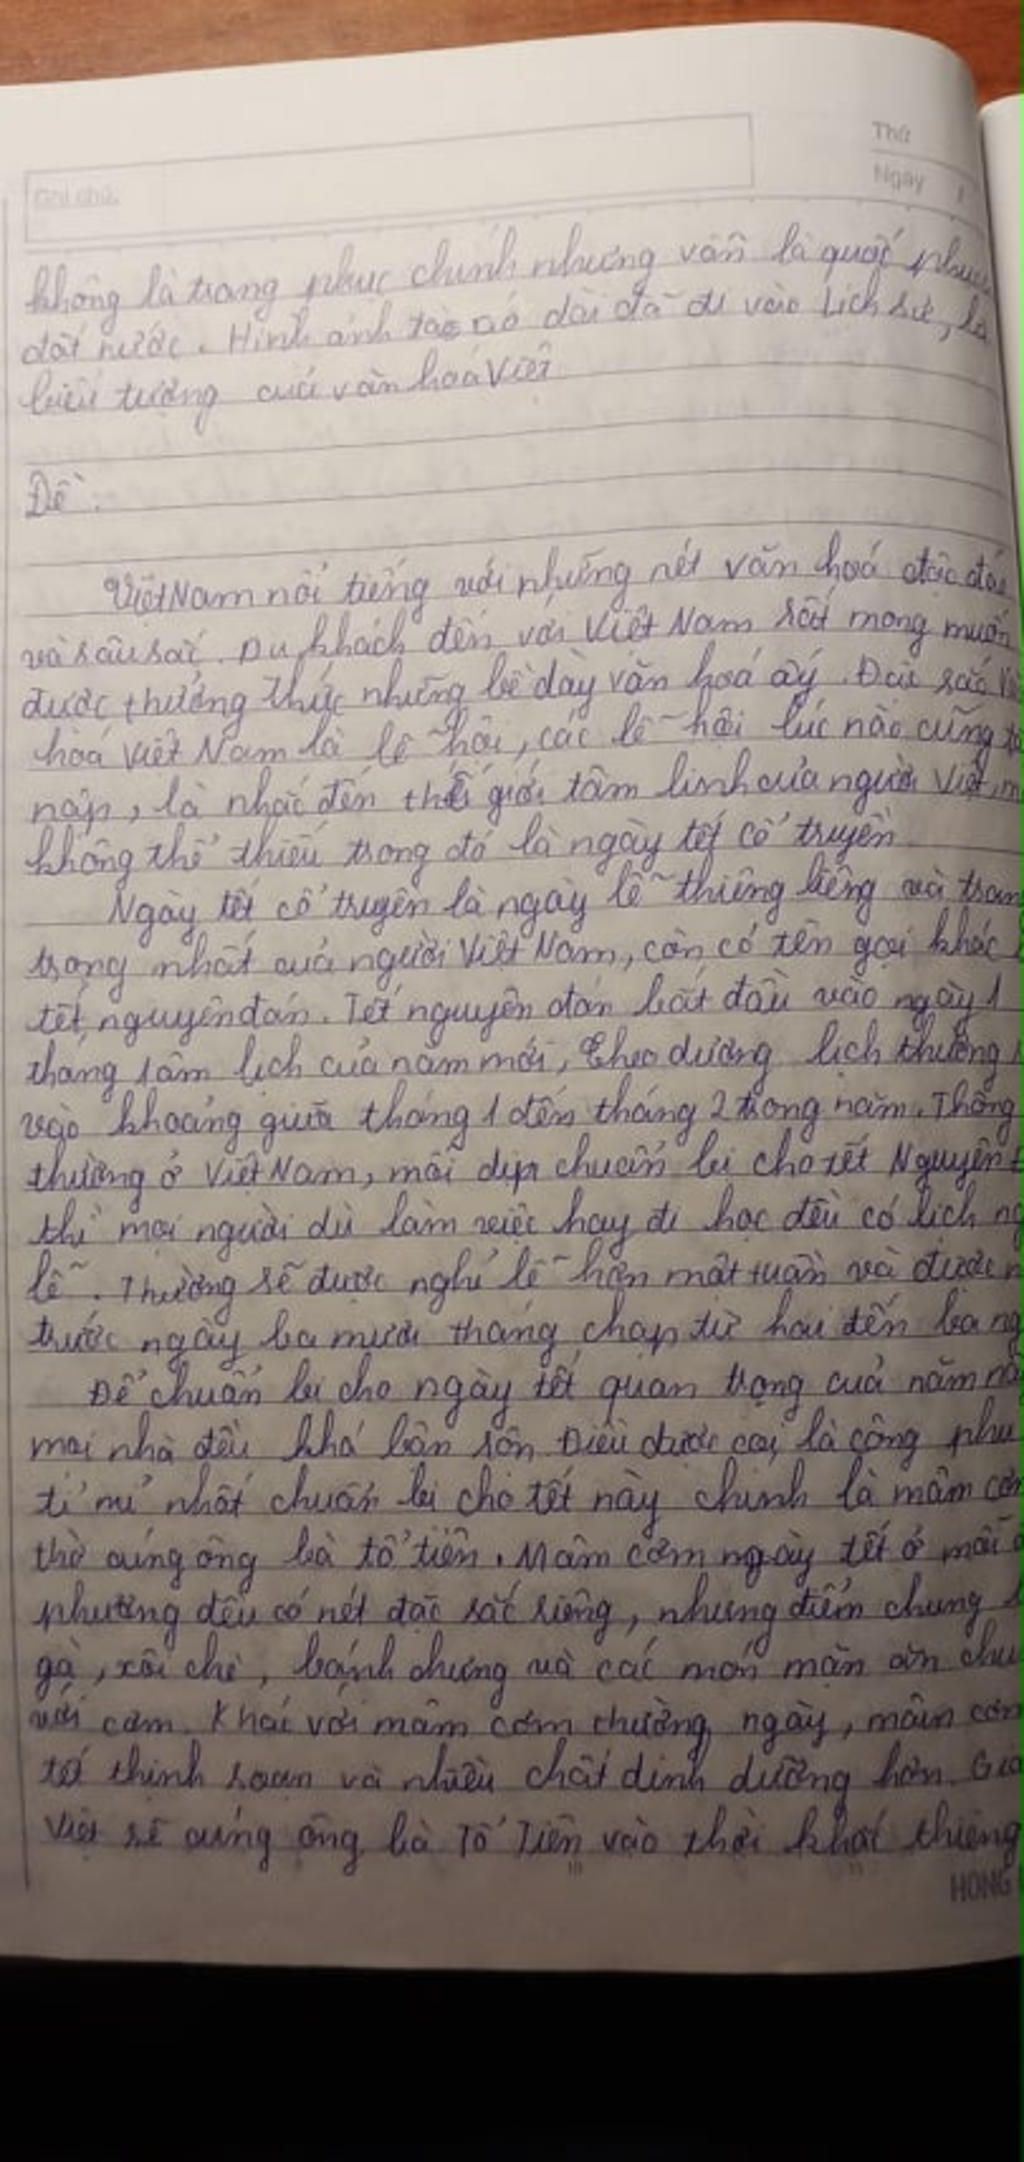 Ghi chú:
Thứ
Ngày
không là trang phục chính nhưng vẫn là quốc phục
đất nước. Hình ảnh tà áo dài đã đi vào lịch sử, là
biểu tượng của văn hoá Việt
Đề:
Việt Nam nổi tiếng với những nét văn hoá độc đáo
và sâu sắc. Du khách đến với Việt Nam rất mong muốn
được thưởng thức những bề dày văn hoá ấy. Đặc sắc
hoá Việt Nam là lễ hội, các lễ hội lúc nào cũng
nập, là nhắc đến thế giới tâm linh của người Việt,
không thể thiếu trong đó là ngày tết cổ truyền.
Ngày tết cổ truyền là ngày lễ thiêng liêng và tran
trọng nhất của người Việt Nam, còn có tên gọi khác
tết nguyên đán. Tết nguyên đán bắt đầu vào ngày 1
tháng 1 âm lịch của năm mới, theo dương lịch thường
vào khoảng giữa tháng 1 đến tháng 2 trong năm. Thông
thường ở Việt Nam, mỗi dịp chuẩn bị cho tết Nguyên
thì mọi người dù làm việc hay đi học đều có lịch ng
lễ. Thường sẽ được nghỉ lễ hơn một tuần và được n
trước ngày ba mươi tháng chạp từ hai đến ba ng
Để chuẩn bị cho ngày tết quan trọng của năm
mọi nhà đều khá bận rộn. Điều được coi là công phu
tỉ mỉ nhất chuẩn bị cho tết này chính là mâm cơm
thờ cúng ông bà tổ tiên. Mâm cơm ngày tết ở mỗi
phương đều có nét đặc sắc riêng, nhưng điểm chung
gà, xôi chè, bánh chưng và các món mặn ăn chu
với cơm. Khác với mâm cơm thường ngày, mâm cơm
tết thịnh soạn và nhiều chất dinh dưỡng hơn. Gia
Việt sẽ cúng ông bà Tổ Tiên vào thời khắc thiêng
HONG